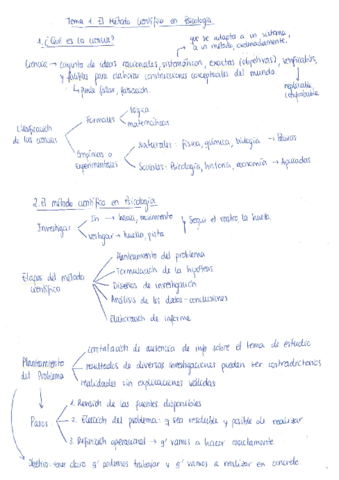 Tema 1. El Método Científico en Psicología.
1. ¿Qué es la ciencia?
que se adapta a un sistema,
a un método, ordenadamente.
Ciencia → conjunto de ideas racionales, sistemáticas, exactas (objetivas), verificables,
y falibles para elaborar construcciones conceptuales del mundo
↳ Puede fallar,
replicable,
Clasificación
de las ciencias
Formales
lógica
matemáticas
Empíricas o
experimentales
Naturales: física, química, biología → Puras
Sociales: Psicología, historia, economía → Aplicadas
2. El método científico en Psicología.
Investigar
In → hacia, movimiento
vestigar → huella, pista
Seguir el rastro, la huella.
Etapas del método
científico
Planteamiento del problema
Formulación de la hipótesis
Diseños de investigación
Análisis de los datos-conclusiones
Elaboración de informe
Planteamiento
del Problema
constatación de ausencia de info sobre el tema de estudio
resultados de diversas investigaciones pueden ser contradictorios
realidades sin explicaciones válidas
Pasos
1. Revisión de las fuentes disponibles
2. Elección del problema: q' sea resoluble y posible de realizar
3. Definición operacional → q' vamos a hacer exactamente
Objetivo: tener claro q' podemos trabajar y q' vamos a realizar en concreto.